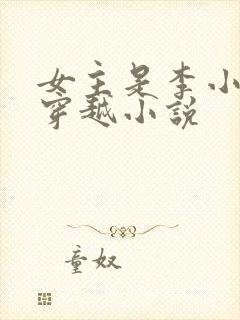 女主是李小
穿越小説
童奴